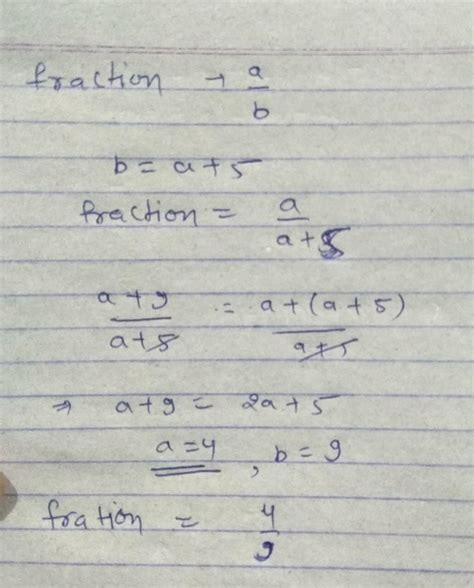 fraction → a/b
b = a + 5
fraction = a/(a + 5)
(a + 9)/(a + 5) = (a + (a + 5))/(a + 5)
⇒ a + 9 = 2a + 5
a = 4, b = 9
fration = 4/9